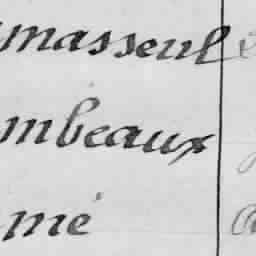 masseul
mbeaux
mé